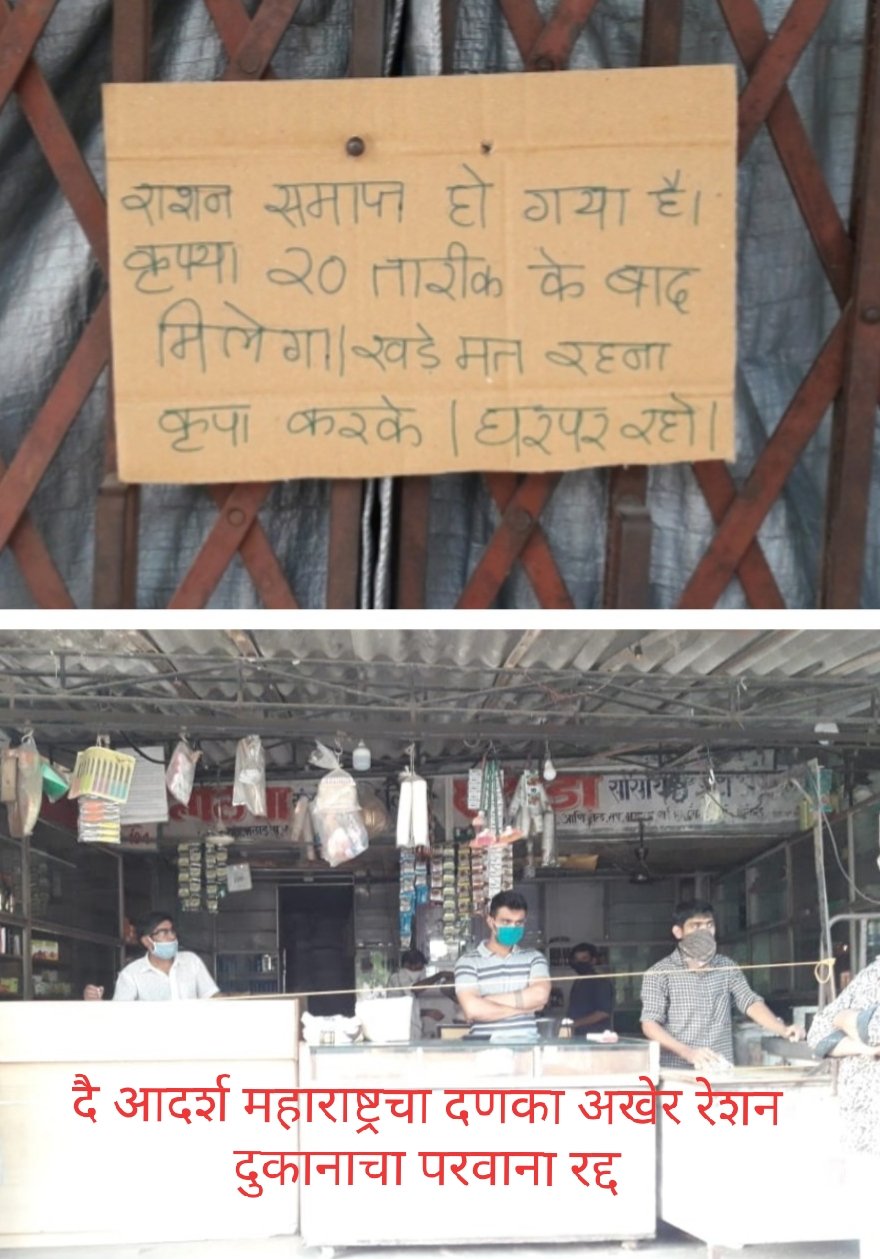 राशन समाप्त हो गया है।
कृपया २० तारीक के बाद
मिलेगा।।खडे मत रहना
कृपा करके । घरपर रहो।
दै आदर्श महाराष्ट्रचा दणका अखेर रेशन
दुकानाचा परवाना रद्द